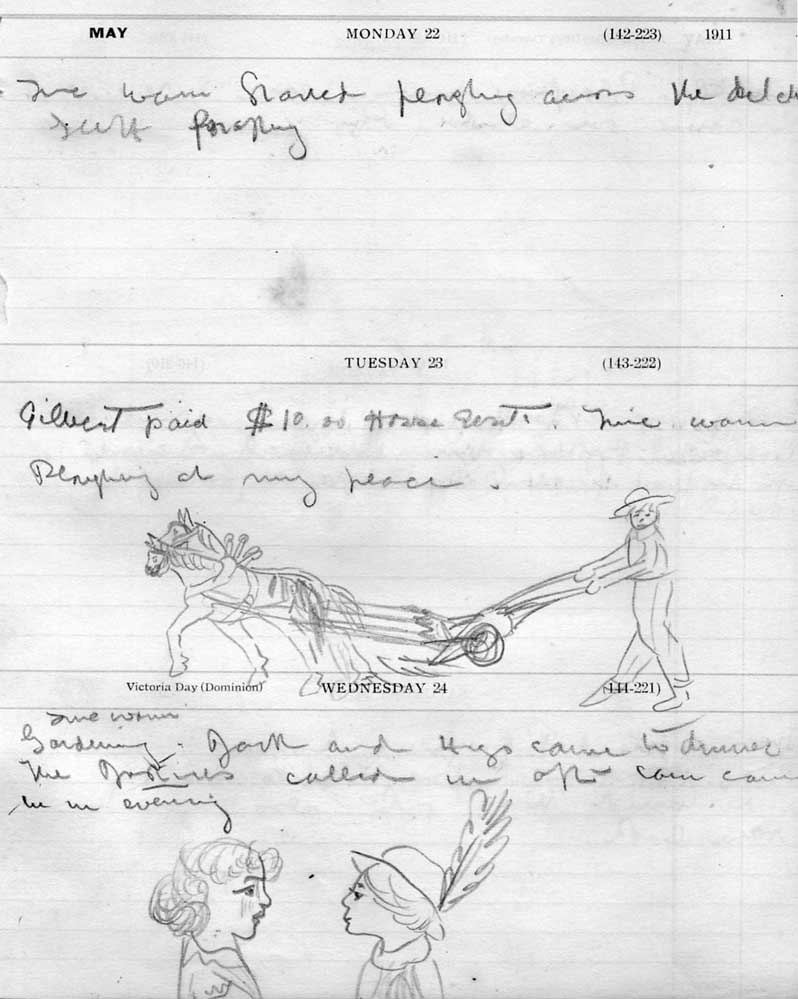 MAY MONDAY 22 (142-223) 1911
Fine warm Started ploughing across the ditch
TUESDAY 23 (143-222)
Gilbert paid $10.00 House Rent. Fine warm
Ploughing at my place.
Victoria Day (Dominion) WEDNESDAY 24 (144-221)
Fine warm
Gardening. Jack and Hugs came to dinner
The called in aft came
in evening